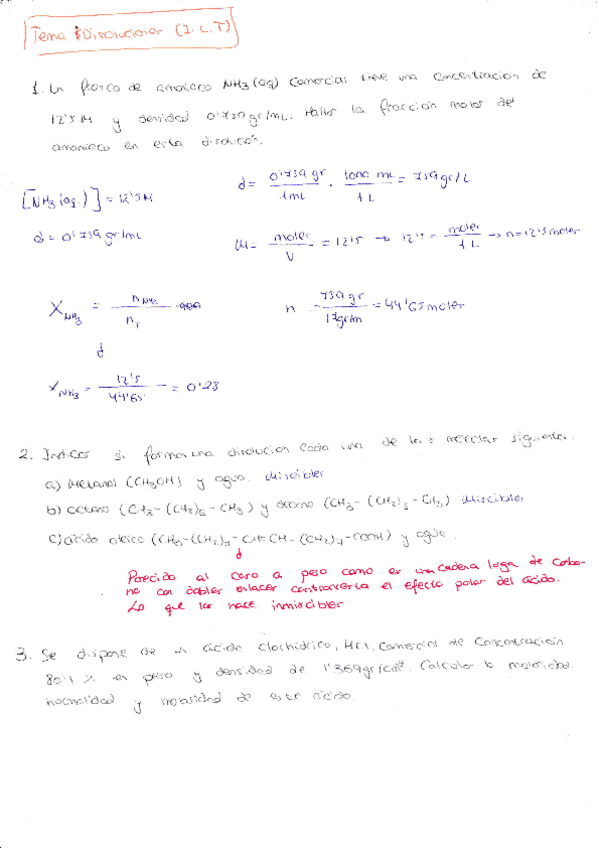 Tema Disoluciones (I.L.T)
1. Un frasco de amoniaco NH3 (aq) comercial tiene una concentracion de
12'5 M y densidad 0'739 gr/mL. Hallar la fracción molar del
amoniaco en esta disolucⁿ.
d = 0'739 gr / 1mL · 1000 mL / 1 L = 739 gr/L
[NH3 (aq.)] = 12'5M
d = 0'739 gr/mL
M = moles / V = 12'5 → 12'5 = moles / 1 L → n = 12'5 moles
X NH3 = n NH3 / n T
n 739 gr / 17gr/m = 44'65 moles
X NH3 = 12'5 / 44'65 = 0'28
2. Indicar si forman una disolucion cada una de las mezclas siguientes.
a) Metanol (CH3OH) y agua. Miscibles
b) octano (CH3-(CH2)6-CH3) y (CH3-(CH2)-CH3) Miscibles
c) acido oleico (CH3-(CH2)7-CH=CH-(CH2)7-COOH) y agua.
Parecido al caso a peso como es una cadena larga de carbo-
no con dobles enlaces contrarresta el efecto polar del ácido.
Lo que los hace inmiscibles
3. Se dispone de un ácido clorhídrico, HCl, comercial de concentración
% en peso y densidad de 1'369gr/cm³. Calcular la molaridad,
normalidad y molalidad de este ácido.